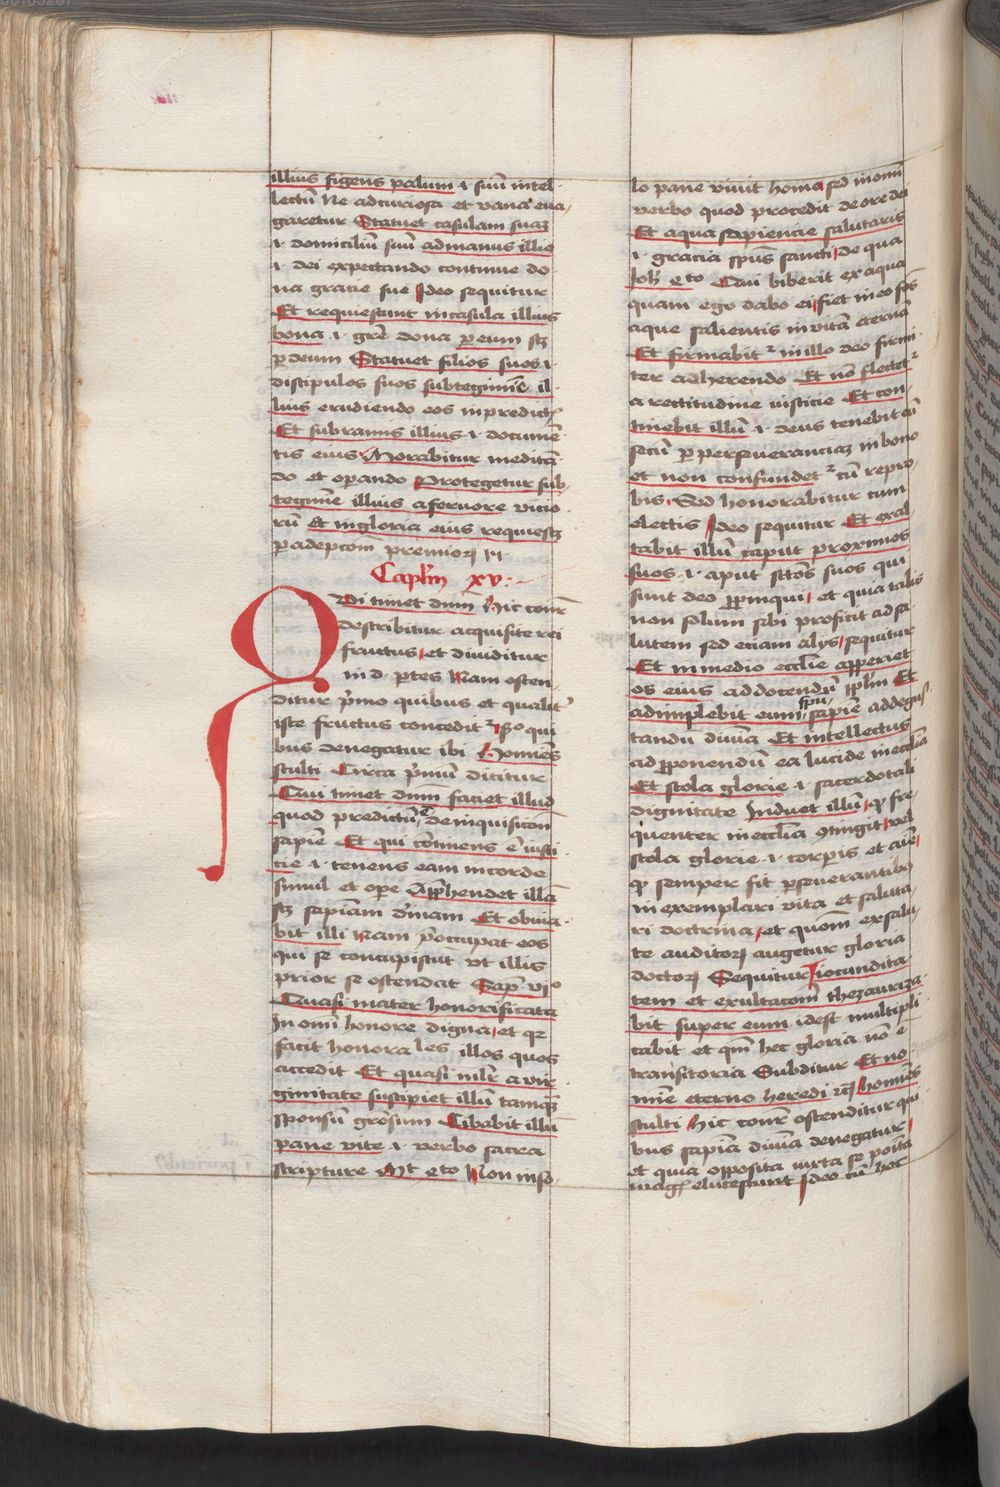 illius figens palum .i. suū intel
lectū ne ad curiosa et vana eua
garetur Statuet casulam suaz
.i. domiciliū suū ad manus illiꝰ
.i. dei expectando continue do
na gracie sue Ideo sequitur
Et requiescunt in casula illius
bona .i. grē dona per eum sꝫ
per deum Statuet filios suos .i.
discipulos suos sub tegimīe il
lius erudiendo eos in predictꝭ
Et sub ramis illius .i. documē
tis eius Morabitur meditā
do et operando Protegetur sub
tegimīe illius a feruore vicio
rū et in gloria eius requiescꝫ
per adepcōem premiorꝝ
Caplm xv
Qui timet dum Hic cōnr
describitur acquisite rei
fructus et diuiditur
in d. ptes Nam osten
ditur pīmo quibus et qualiter
iste fructus conceditur sꝫo qui
bus denegatur ibi Homines
stulti Circa pīmū dicitur
Qui timet dum faciet illud
quod predictū ē de inquisicōne
sapīe Et qui cōtinens ē iusti
cie .i. tenens eam in corde
simul et ope Apphendet illā
sꝫ sapīam diuinam Et obuia
bit illi Nam poccupat eos
qui se concupiscūt vt illis
prior se ostendat Sap viᵒ
Quasi mater honorificata
In omī honore digna et qꝛ
facit honorales illos quos
accedit Et quasi mlr a vir
ginitate suscipiet illū tamqꝫ
sponsū grōsum Cibabit illū
pane vite .i. verbo sacra
scripture Mt qͭto Non in so
lo pane viuit homo sed in omī
verbo quod procedit de ore dei
Et aqua sapiencie salutaris
.i. gracia spūs sancti de qua
Joh qͭto Qui biberit ex aqua
quam ego dabo ei fiet in eo fōs
aque salientis in vitā eternā
Et firmabitᷣ in illo deo firmi
ter adherendo Et nō flectetᷣ
a rectitudine iusticie Et con
tinebit illū .i. deus tenebit eū
secū per perseueranciaz in bono
et non confundetᷣ cū repro
bis. Sed honorabitur cum
electis Ideo sequitur Et exal
tabit illū caput proximos
suos .i. aput sctōs suos qui
sunt deo ppinqui et quia talis
non solum sibi proficit ad sa
lutem sed eciam alijs sequitur
Et in medio ecclīe apperiet
os eius ad docendū pplm Et
adimplebit eum spū sapīe ad degus
tandū diuīa Et intellectus
ad pponendū ea lucide in ecclīa
Et stola glorie .i. sacerdotali
dignitate Induet illū qꝫ fre
quenter in ecclīa ꝯtingit vel
stola glorie .i. corpis et aīe
qꝫ semper fit perseuerantibꝫ
in exemplari vita et saluta
ri doctrina et quom ex salu
te auditorꝝ augetur gloria
doctorꝝ Sequitur Iocundita
tem et exultacōem thezauriza
bit super eum id est multipli
cabit et qm hec gloria nō ē
transitoria Subditur Et no
mīe eterno heredi rꝛc Homīes
stulti Hic cōnr ostenditur qui
bus sapīa diuīa denegatur
et quia opposita iuxta se posita
magꝭ elucescunt Ideo cū hoc